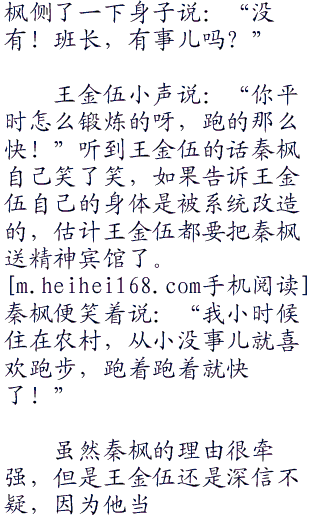 枫侧了一下身子说：“没
有！班长，有事儿吗？”
王金伍小声说：“你平
时怎么锻炼的呀，跑的那么
快！”听到王金伍的话秦枫
自己笑了笑，如果告诉王金
伍自己的身体是被系统改造
的，估计王金伍都要把秦枫
送精神宾馆了。
[m.heihei168.com手机阅读]
秦枫便笑着说：“我小时候
住在农村，从小没事儿就喜
欢跑步，跑着跑着就快
了！”
虽然秦枫的理由很牵
强，但是王金伍还是深信不
疑，因为他当